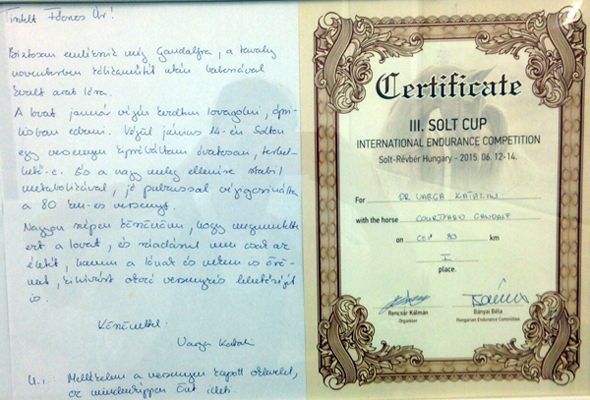 Tisztelt Főorvos Úr!
Biztosan emlékszik még Gandalfra, a tavaly
novemberben kólikaműtét után
arab lóra.
A lovat január végén kezdtem lovagolni, ápri-
lisban edzeni. Végül június 14-én Solton
egy versenyen kipróbáltam óvatosan, terhel-
hető-e. És a nagy meleg ellenére stabil
metabolizával, jó pulzussal végigcsinálta
a 80 km-es versenyt.
Nagyon szépen köszönöm, hogy megmentette
ezt a lovat, és ráadásul nem csak az
életét, hanem a lónak és nekem is örö-
met, kihívást okozó versenyzés lehetőségét
is.
Köszönettel:
Varga Katalin
U.i. Mellékelem a versenyen kapott oklevelet,
az mindenképpen Önt illeti.
Certificate
III. SOLT CUP
INTERNATIONAL ENDURANCE COMPETITION
Solt-Révbér Hungary - 2015. 06. 12-14.
For DR VARGA KATALIN
with the horse COURTYARD GANDALF
on CEN 80 km
I.
place.
Rencsár Kálmán
Organiser
Bányai Béla
Hungarian Endurance Committee